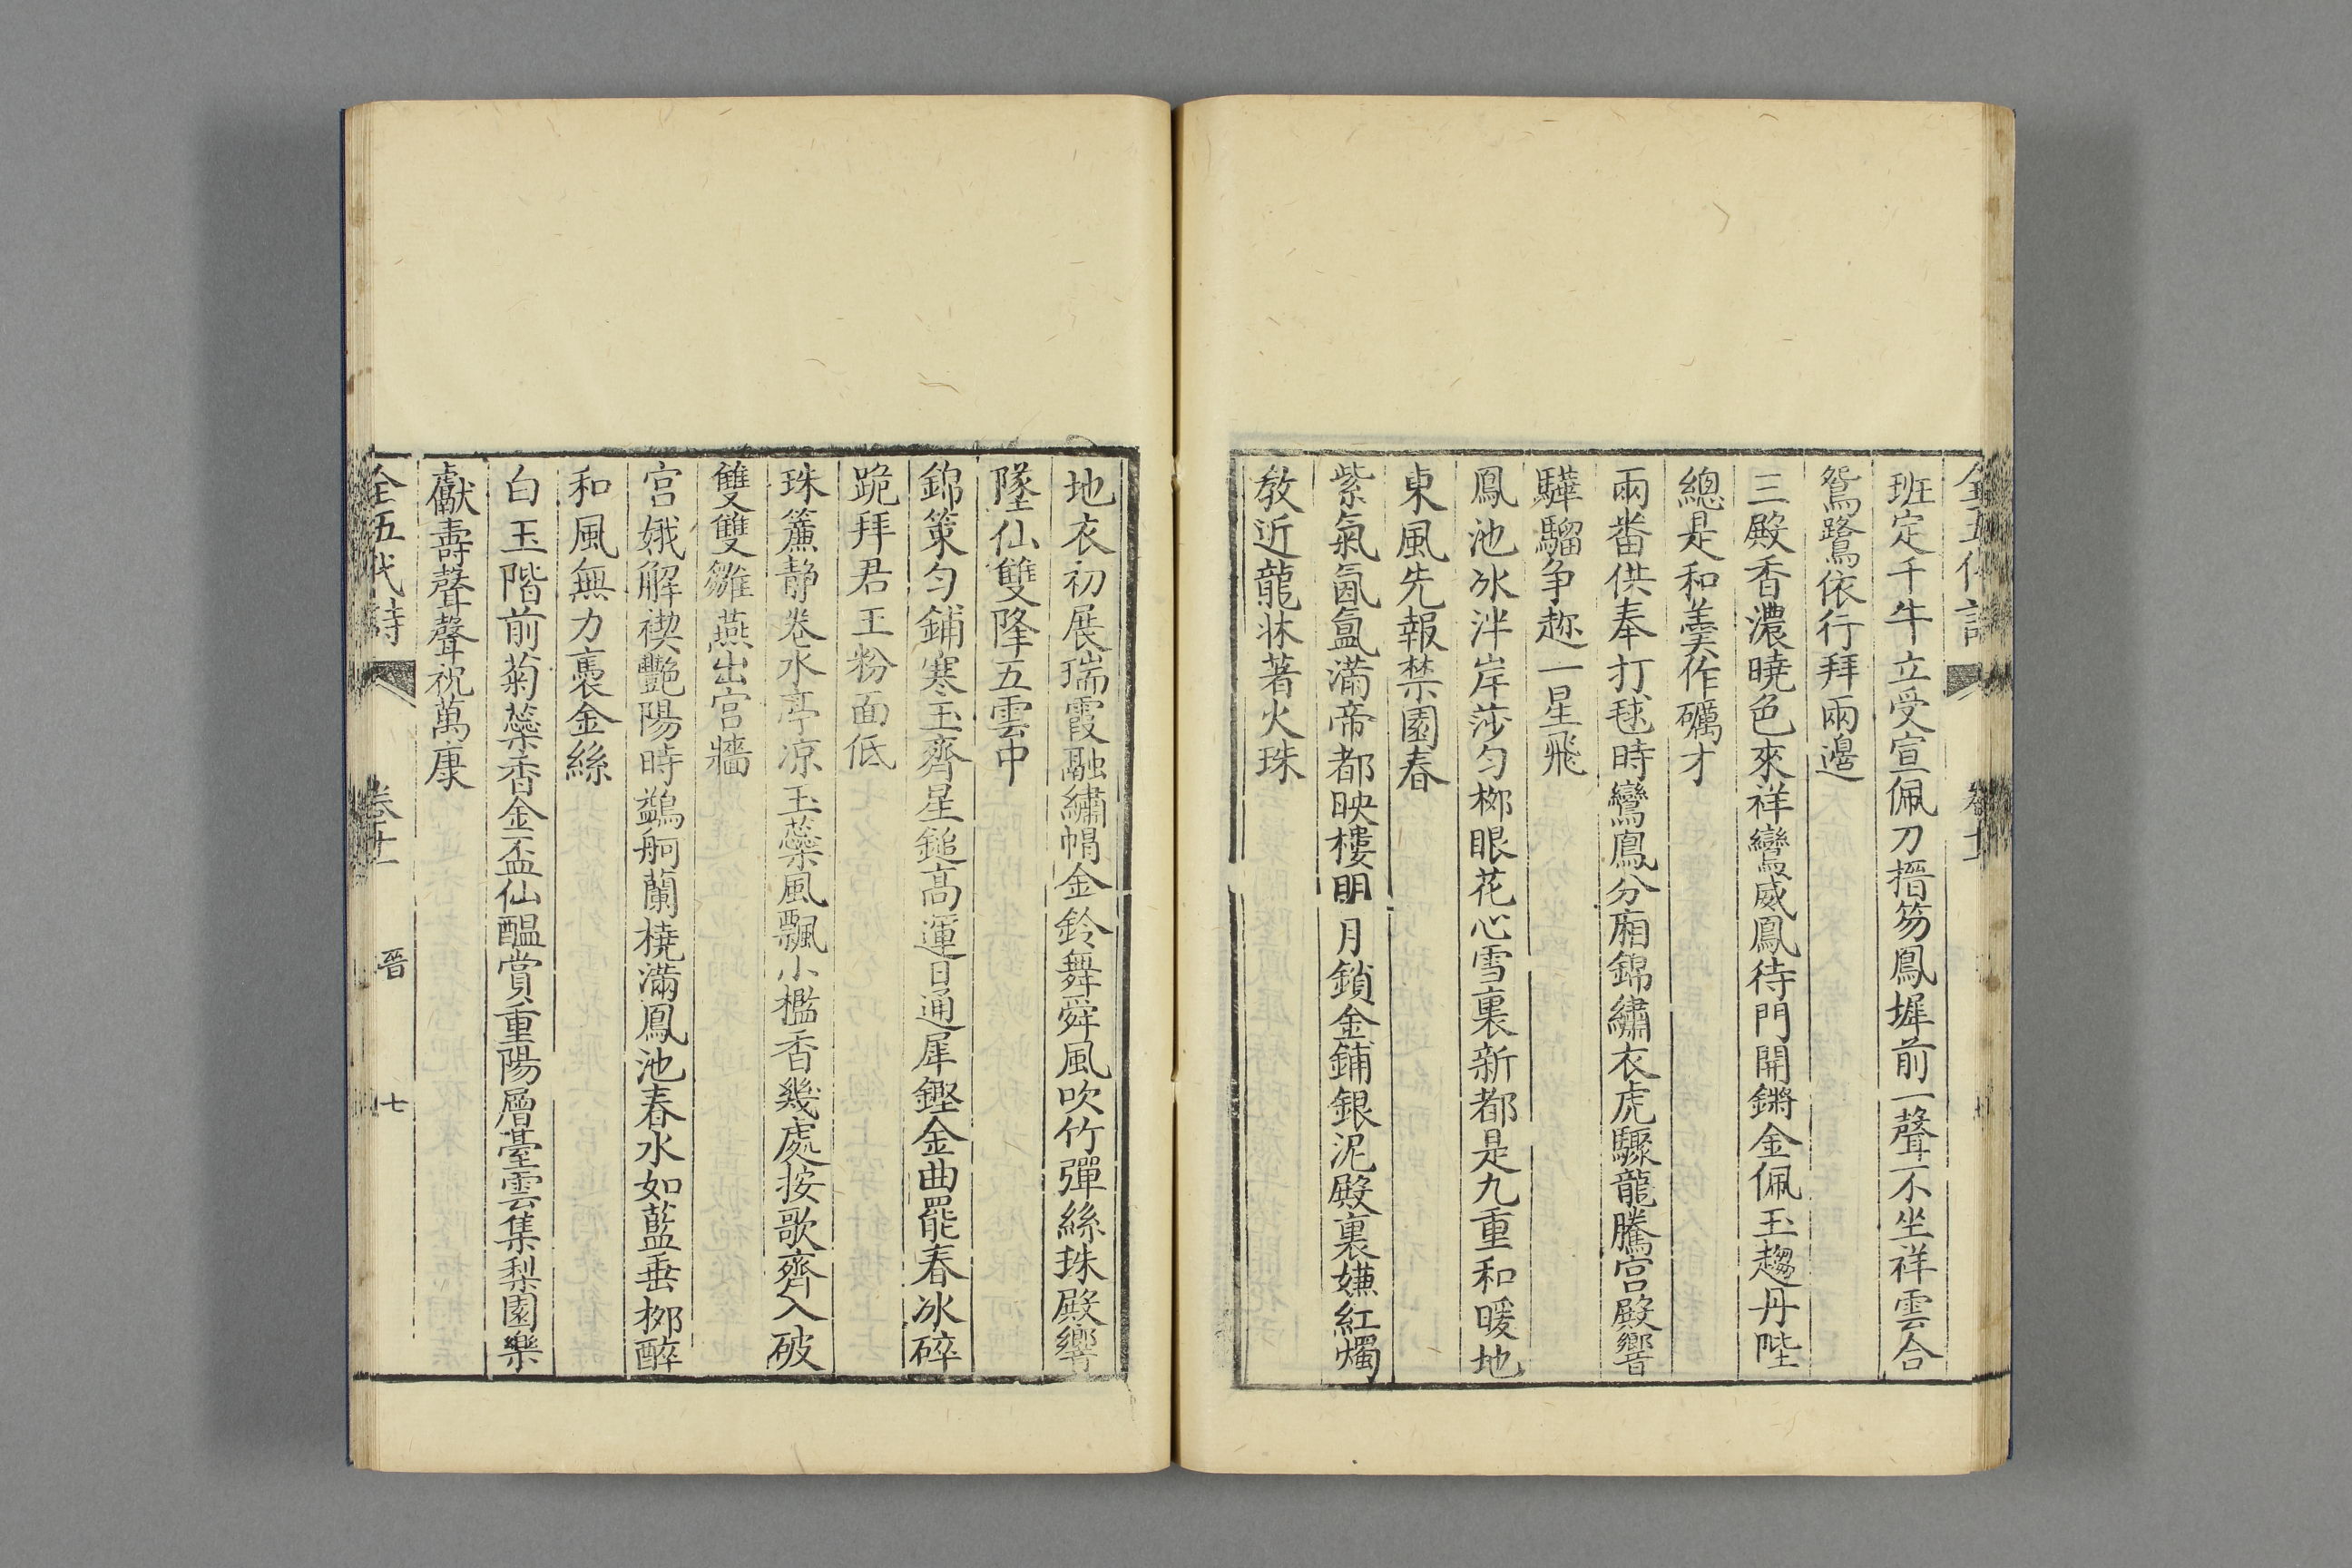 班定千牛立受宣佩刀搢笏鳳墀前一聲不坐祥雲合
鴛鷺依行拜兩邊
三殿香濃曉色來祥鸞威鳳待門開鏘金佩玉趨丹陛
總是和羹作礪才
兩番供奉打毬時鸞鳳分廂錦繡衣虎驟龍騰宮殿響
驊騮争趂一星飛
鳳池冰泮岸莎匀桞眼花心雪裏新都是九重和暖地
東風先報禁園春
紫氣氤氲滿帝都映樓明月鎖金鋪銀泥殿裏嫌紅燭
教近龍牀著火珠
地衣初展瑞霞融繡帽金鈴舞舜風吹竹彈絲珠殿響
墜仙雙降五雲中
錦策匀鋪寒玉齊星鎚高運日通犀鏗金曲罷春冰碎
跪拜君王粉面低
珠簾静卷水亭凉玉蘂風飄小檻香幾處按歌齊入破
雙雙雛燕出宮牆
宮娥解禊艷陽時鷁舸蘭橈滿鳳池春水如藍垂桞醉
和風無力裊金絲
白玉階前菊蘂香金盃仙醖賞重陽層臺雲集梨園樂
獻壽聲聲祝萬康
全五代詩 卷十二 晉 七